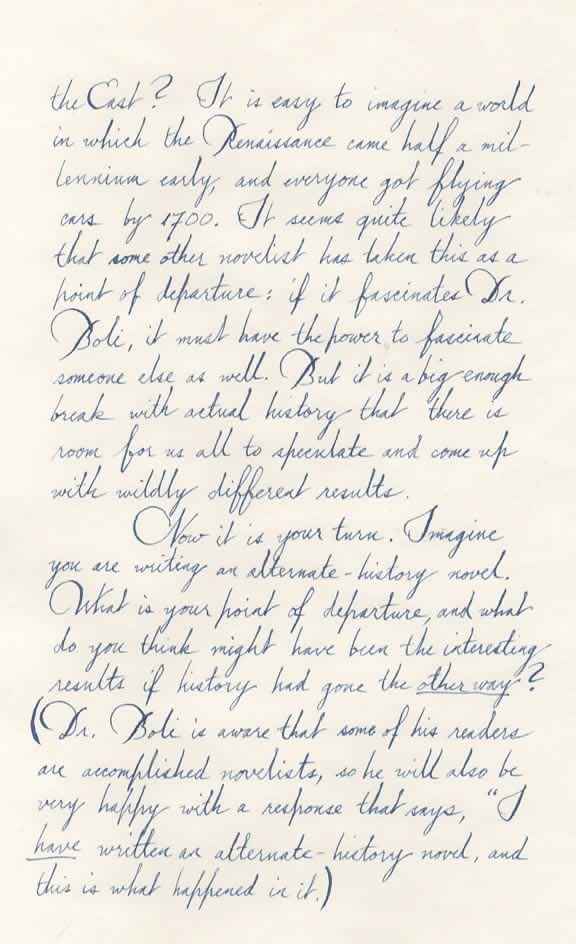 the East? It is easy to imagine a world
in which the Renaissance came half a mil-
lennium early, and everyone got flying
cars by 1700. It seems quite likely
that some other novelist has taken this as a
point of departure: if it fascinates Dr.
Boli, it must have the power to fascinate
someone else as well. But it is a big enough
break with actual history that there is
room for us all to speculate and come up
with wildly different results.
Now it is your turn. Imagine
you are writing an alternate-history novel.
What is your point of departure, and what
do you think might have been the interesting
results if history had gone the other way?
(Dr. Boli is aware that some of his readers
are accomplished novelists, so he will also be
very happy with a response that says, “I
have written an alternate-history novel, and
this is what happened in it.)